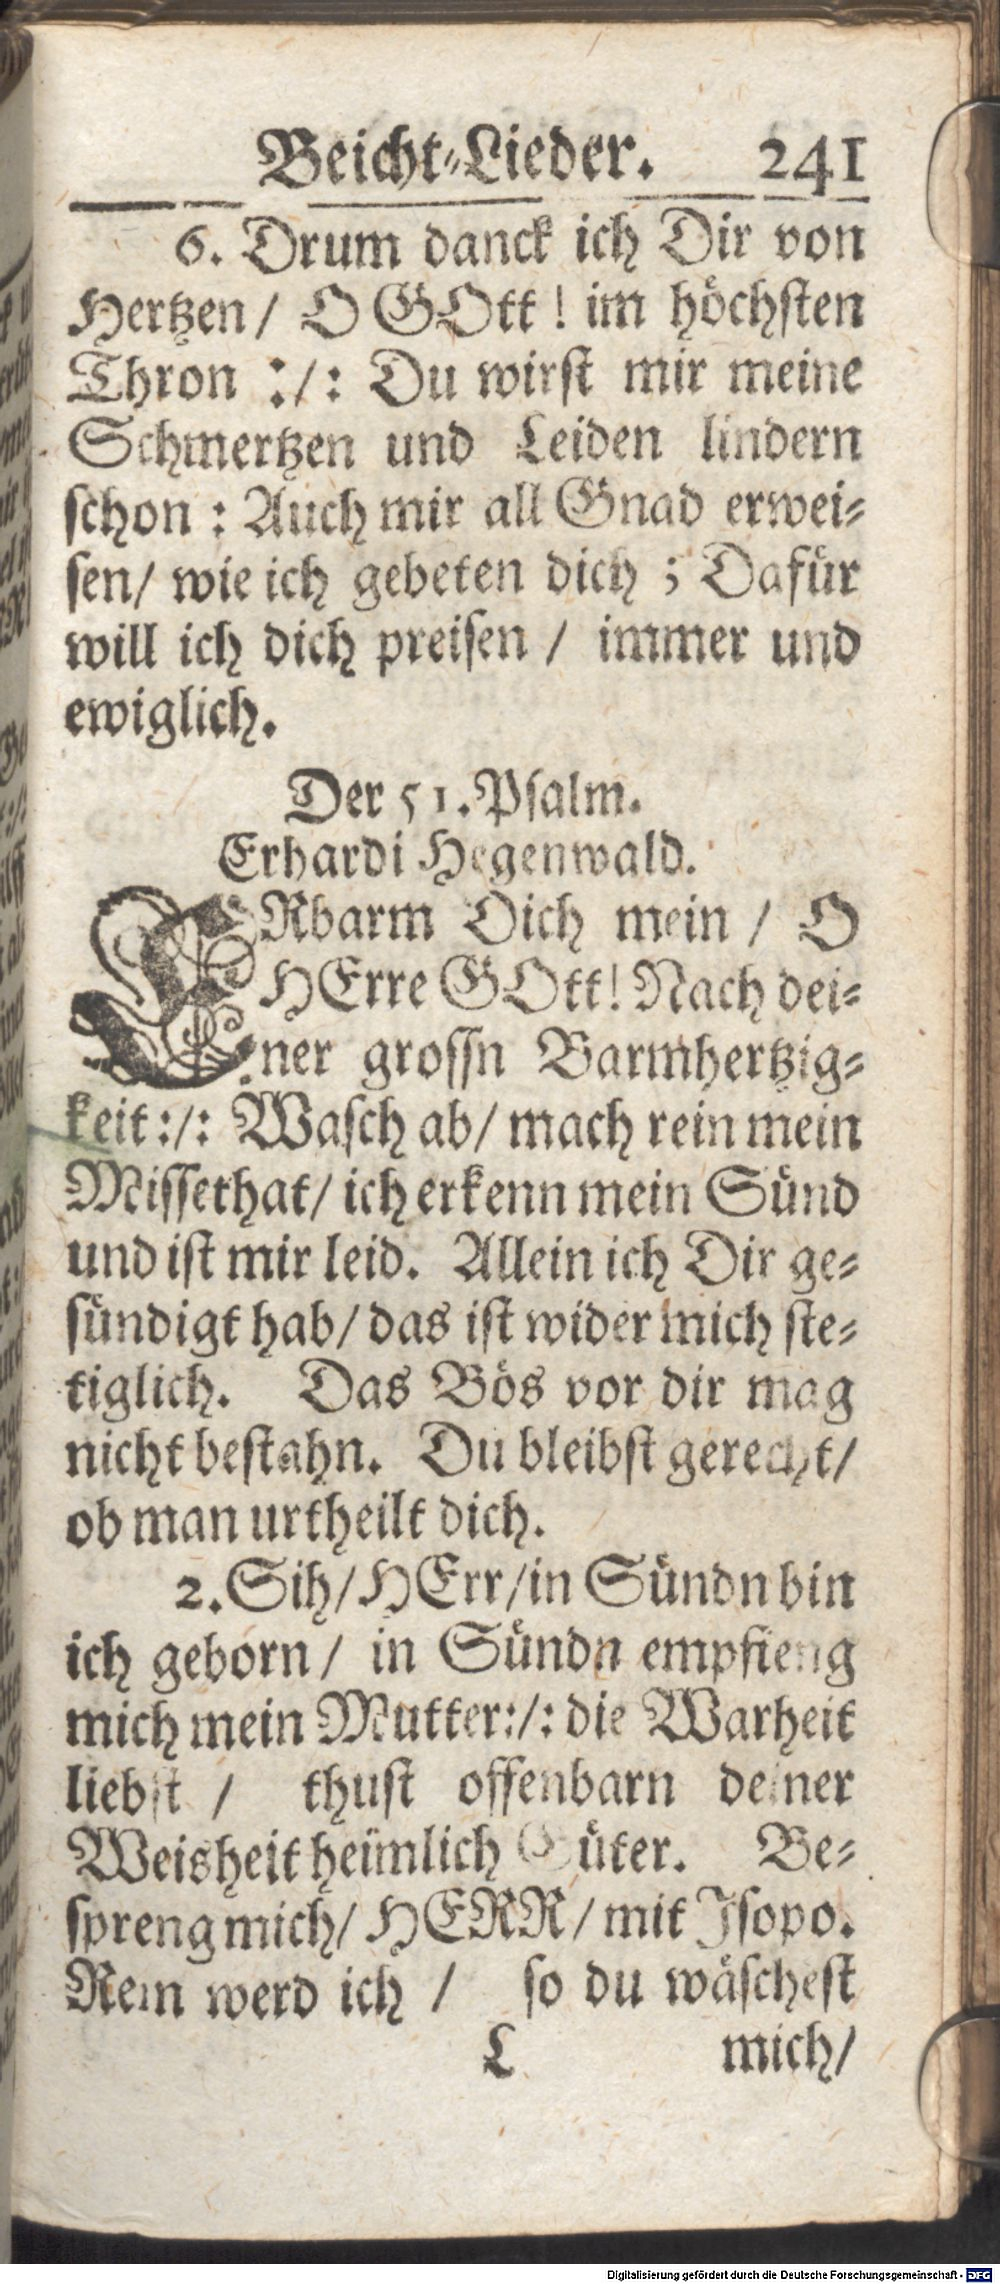 Beicht-Lieder. 241
6. Drum danck ich Dir von
Hertzen/ O GOtt! im höchsten
Thron :/: Du wirst mir meine
Schmertzen und Leiden lindern
schon: Auch mir all Gnad erwei-
sen/ wie ich gebeten dich; Dafür
will ich dich preisen/ immer und
ewiglich.
Der 51. Psalm.
Erhardi Hegenwald.
ERbarm Dich mein/ O
HErre GOtt! Nach dei-
ner grossn Barmhertzig-
keit:/: Wasch ab/ mach rein mein
Missethat/ ich erkenn mein Sünd
und ist mir leid. Allein ich Dir ge-
sündigt hab/ das ist wider mich ste-
tiglich. Das Bös vor dir mag
nicht bestahn. Du bleibst gerecht/
ob man urtheilt dich.
2. Sih/ HErr/ in Sündn bin
ich geborn/ in Sündn empfieng
mich mein Mutter:/: die Warheit
liebst/ thust offenbarn deiner
Weisheit heimlich Güter. Be-
spreng mich/ HERR/ mit Jsopo.
Rein werd ich/ so du wäschest
L mich/
Digitalisierung gefördert durch die Deutsche Forschungsgemeinschaft - DFG